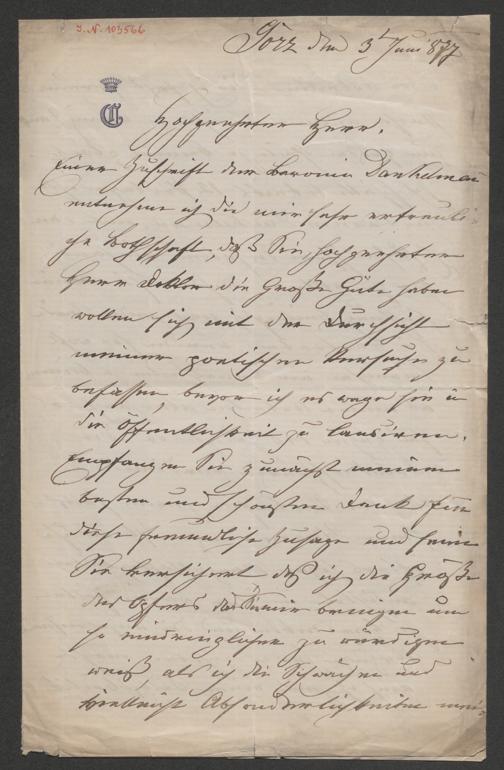 J. N. 103566
Görz den 3t Juni 877
C
Hochgeehrter Herr.
Einer Zuschrift der Baronin Dankelman
entnehme ich die mir sehr erfreuli-
che Bothschaft, daß Sie, hochgeehrter
Herr Doktor die Große Güte haben
wollen sich mit der Durchsicht
meiner poetischen Versuche zu
befassen, bevor ich es wage sie in
die Öffentlichkeit zu lanciren.
Empfangen Sie zunächst meinen
besten und schönsten Dank für
diese freundliche Zusage und seien
Sie versichert, daß ich die Größe
des Opfers das Sie mir bringen um
so eindringlicher zu würdigen
weiß, als ich die Schwächen und
vielleicht Absonderlichkeiten mei-